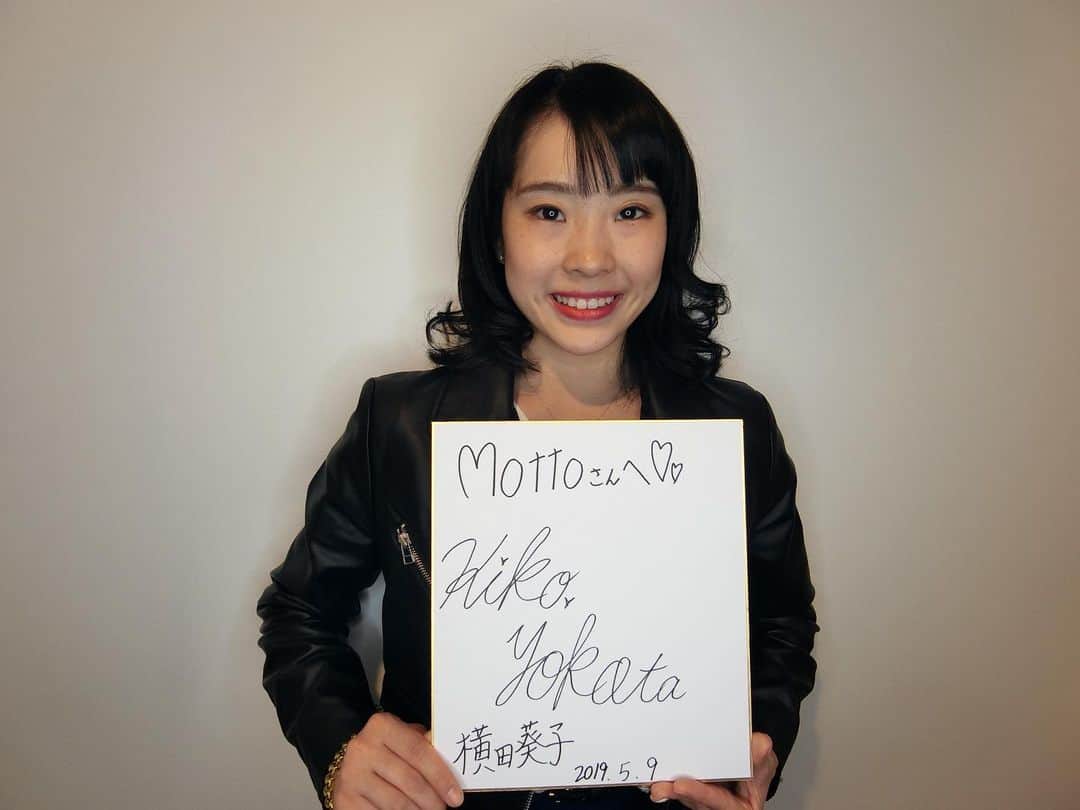 Mottoさんへ♡♡
Kiko
Yokota
横田葵子
2019.5.9